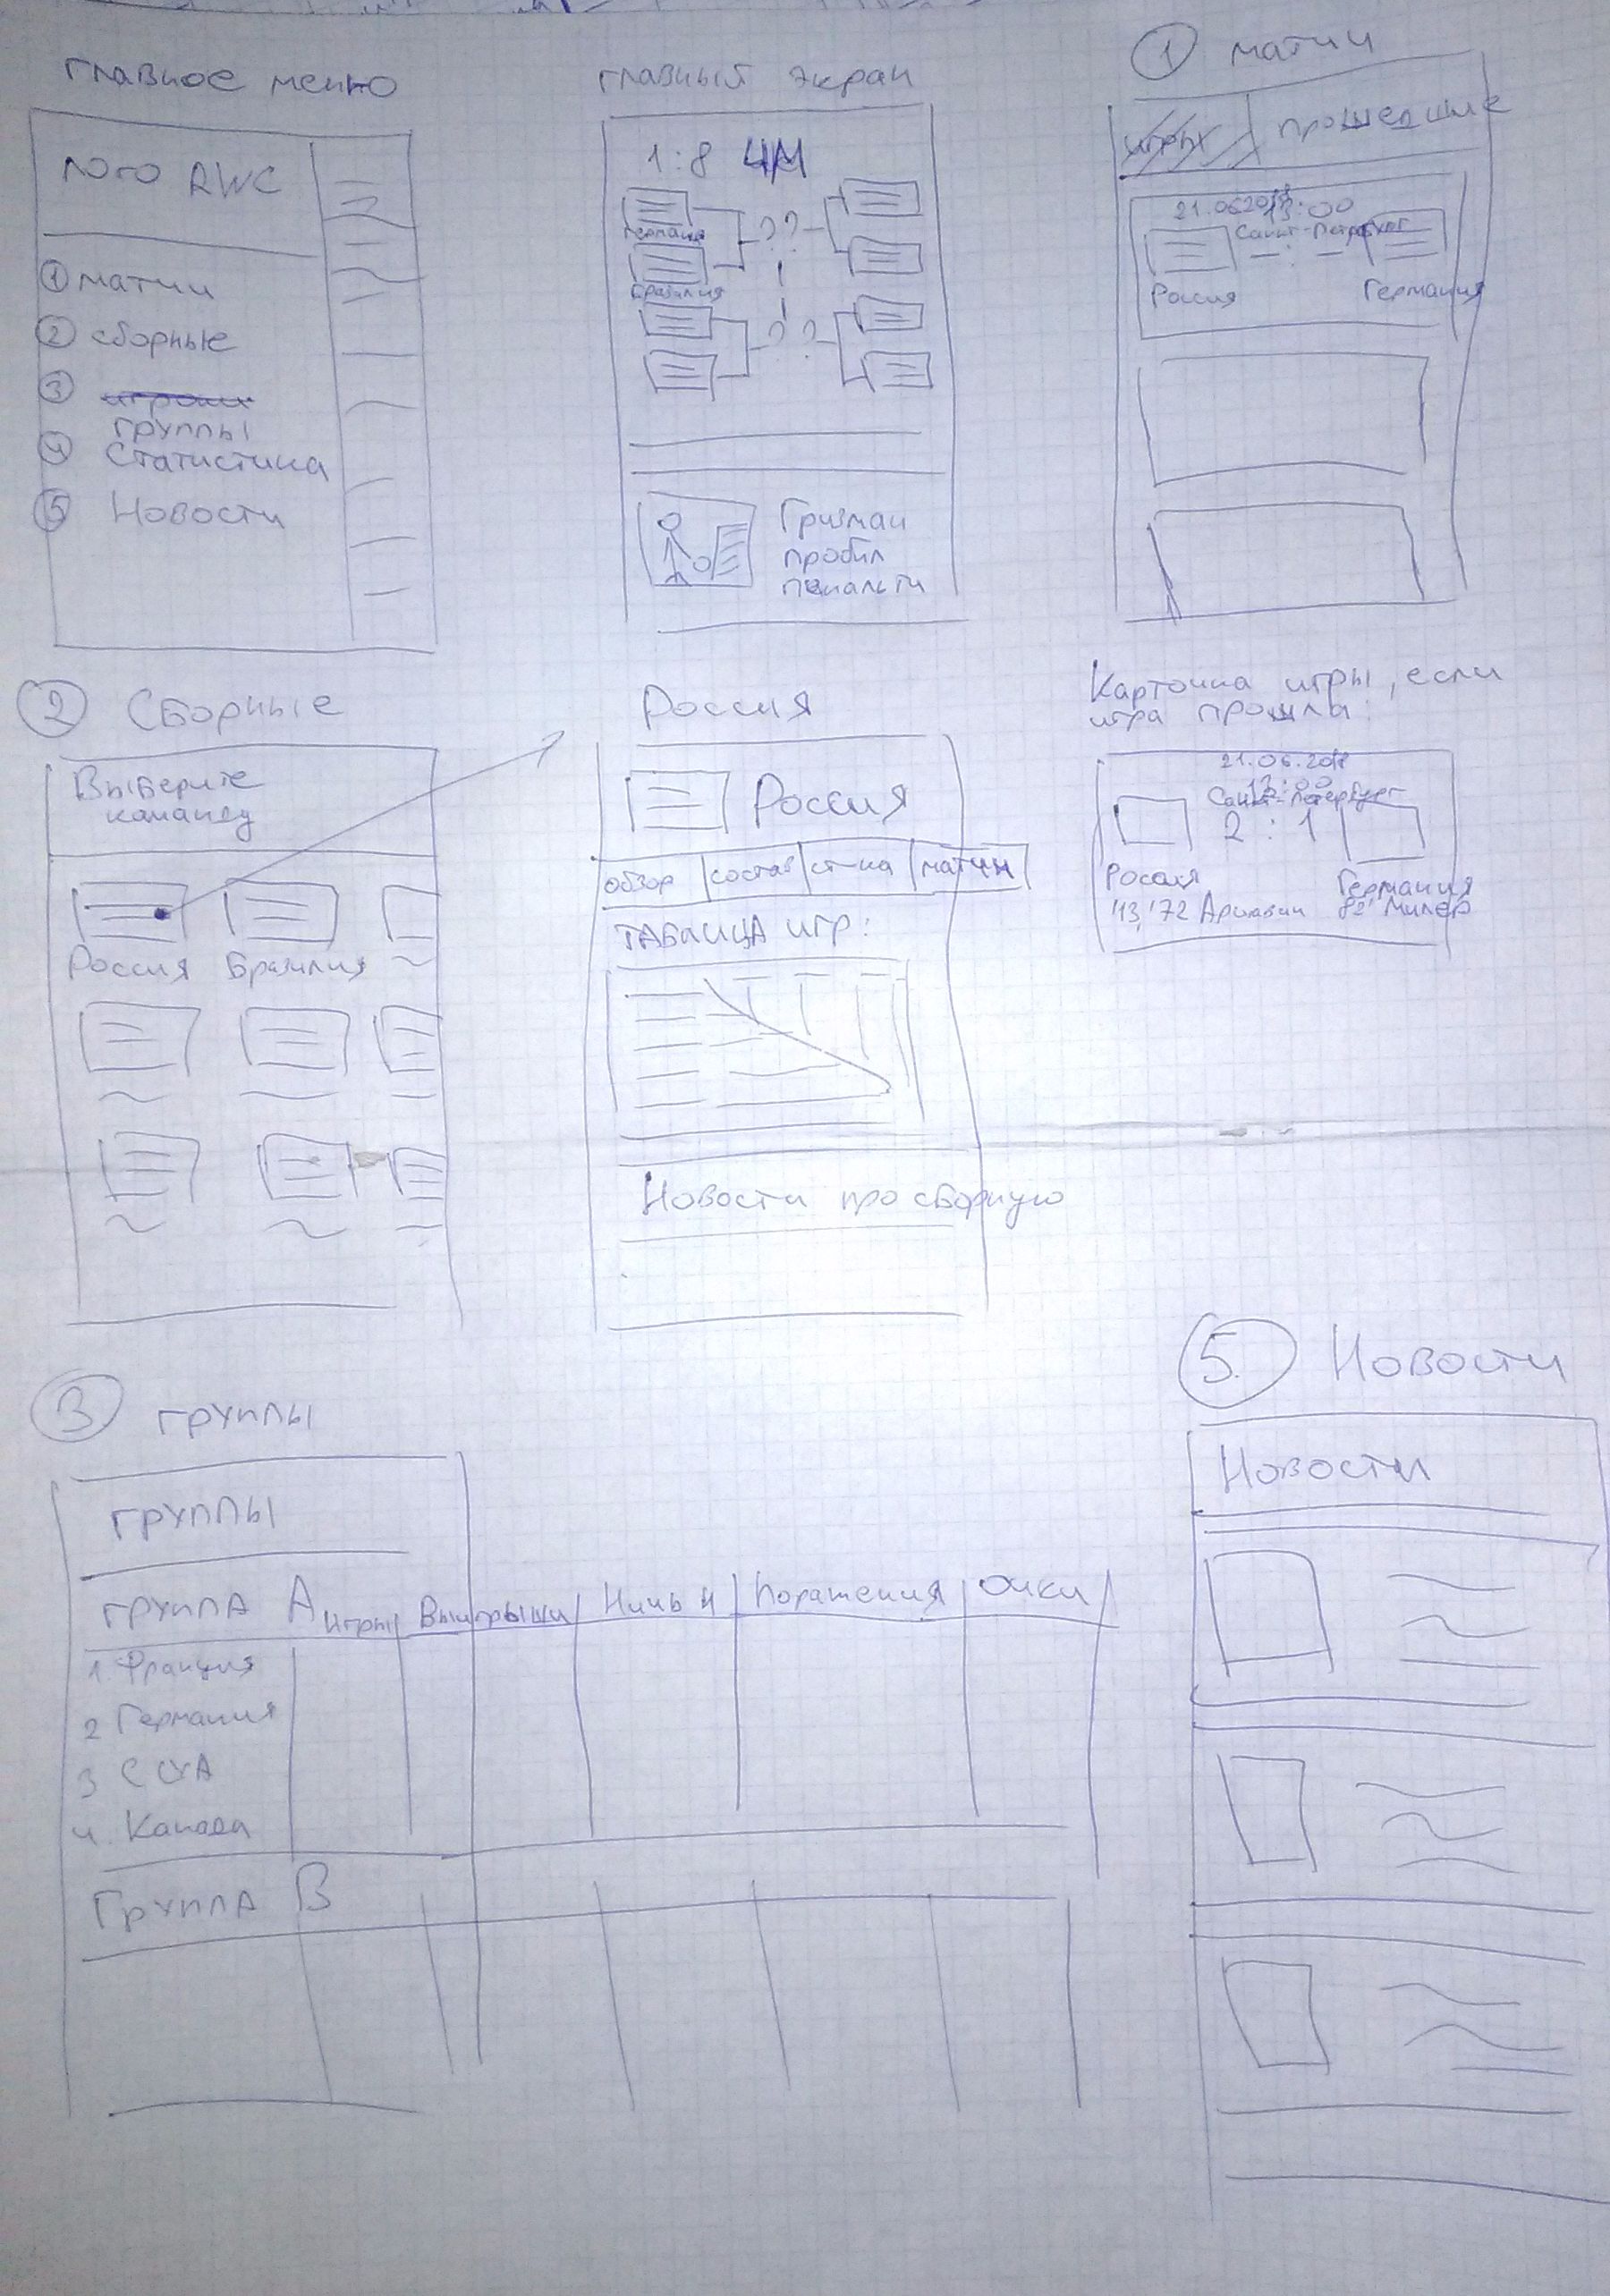 главное меню
лого RWC
① матчи
② сборные
③ игроки
группы
④ Статистика
⑤ Новости
главный экран
1:8 ЧМ
Германия
Бразилия
? ?
? ?
Гризман
пробил
пенальти
① матчи
прошедшие
21.06.2018
13:00
Санкт-Петербург
- : -
Россия Германия
② Сборные
Выберите
команду
Россия Бразилия
Россия
Россия
обзор состав ст-ка матчи
ТАБЛИЦА игр:
Новости про сборную
Карточка игры, если
игра прошла:
21.06.2018
13:00
Санкт-Петербург
2 : 1
Россия Германия
'13, '72 Аршавин 82' Милер
③ группы
группы
группа А игры Выигрыши Ничьи Поражения Очки
1. Франция
2 Германия
3 США
4. Канада
Группа В
⑤. Новости
Новости